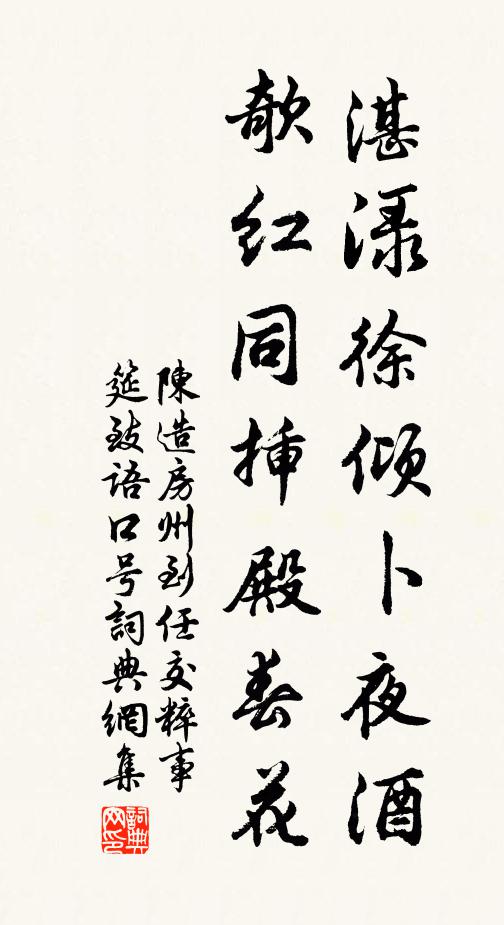 湛渌徐倾卜夜酒
欹红同插殿春花
陳造房州到任交粹事
筵致语口号詞典網集
詞典网印